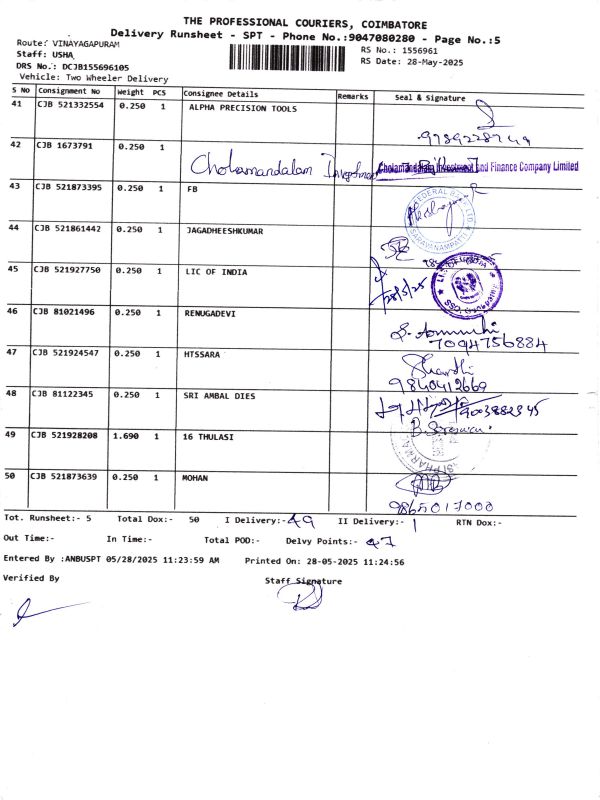 THE PROFESSIONAL COURIERS, COIMBATORE
Delivery Runsheet - SPT - Phone No.:9047080280 - Page No.:5
Route: VINAYAGAPURAM
Staff: USHA
DRS No.: DCJB155696105
Vehicle: Two Wheeler Delivery
RS No.: 1556961
RS Date: 28-May-2025
S No Consignment No Weight PCS Consignee Details Remarks Seal & Signature
41 CJB 521332554 0.250 1 ALPHA PRECISION TOOLS
9789228749
42 CJB 1673791 0.250 1
Cholamandalam Investment
Cholamandalam Investment and Finance Company Limited
43 CJB 521873395 0.250 1 FB
FEDERAL BANK LTD
SARAVANAMPATTI
44 CJB 521861442 0.250 1 JAGADHEESHKUMAR
45 CJB 521927750 0.250 1 LIC OF INDIA
28/5/25
46 CJB 81021496 0.250 1 RENUGADEVI
7094756884
47 CJB 521924547 0.250 1 HTSSARA
Shanthi
9840412669
48 CJB 81122345 0.250 1 SRI AMBAL DIES
9003882345
49 CJB 521928208 1.690 1 16 THULASI
50 CJB 521873639 0.250 1 MOHAN
9865017000
Tot. Runsheet:- 5 Total Dox:- 50 I Delivery:- 49 II Delivery:- 1 RTN Dox:-
Out Time:- In Time:- Total POD:- Delvy Points:- 47
Entered By :ANBUSPT 05/28/2025 11:23:59 AM Printed On: 28-05-2025 11:24:56
Verified By Staff Signature